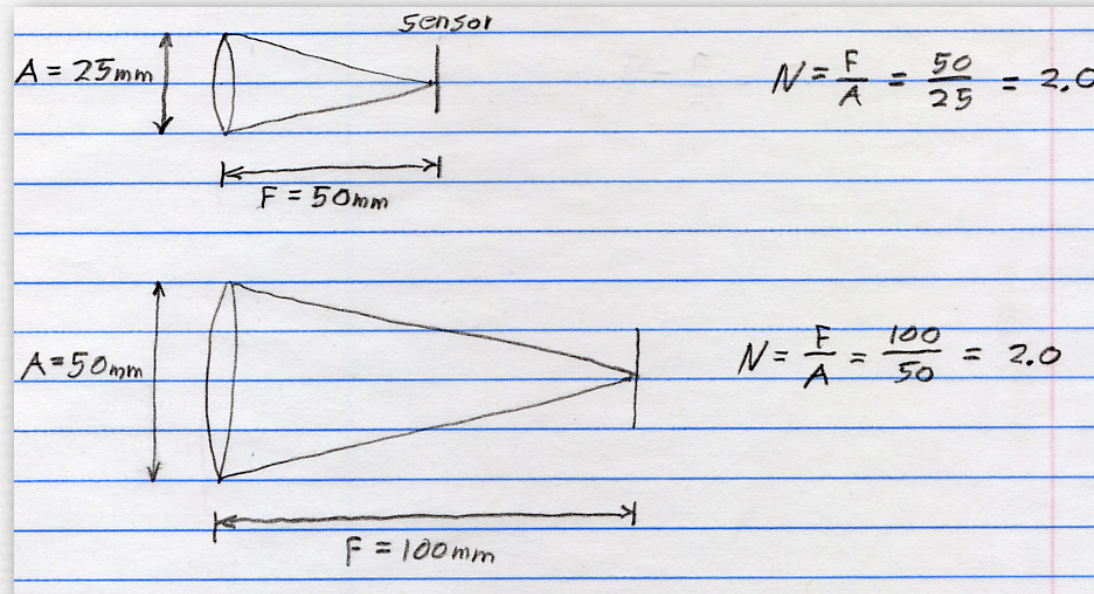 sensor
A = 25mm
N = F/A = 50/25 = 2.0
F = 50mm
A=50mm
N = F/A = 100/50 = 2.0
F = 100mm